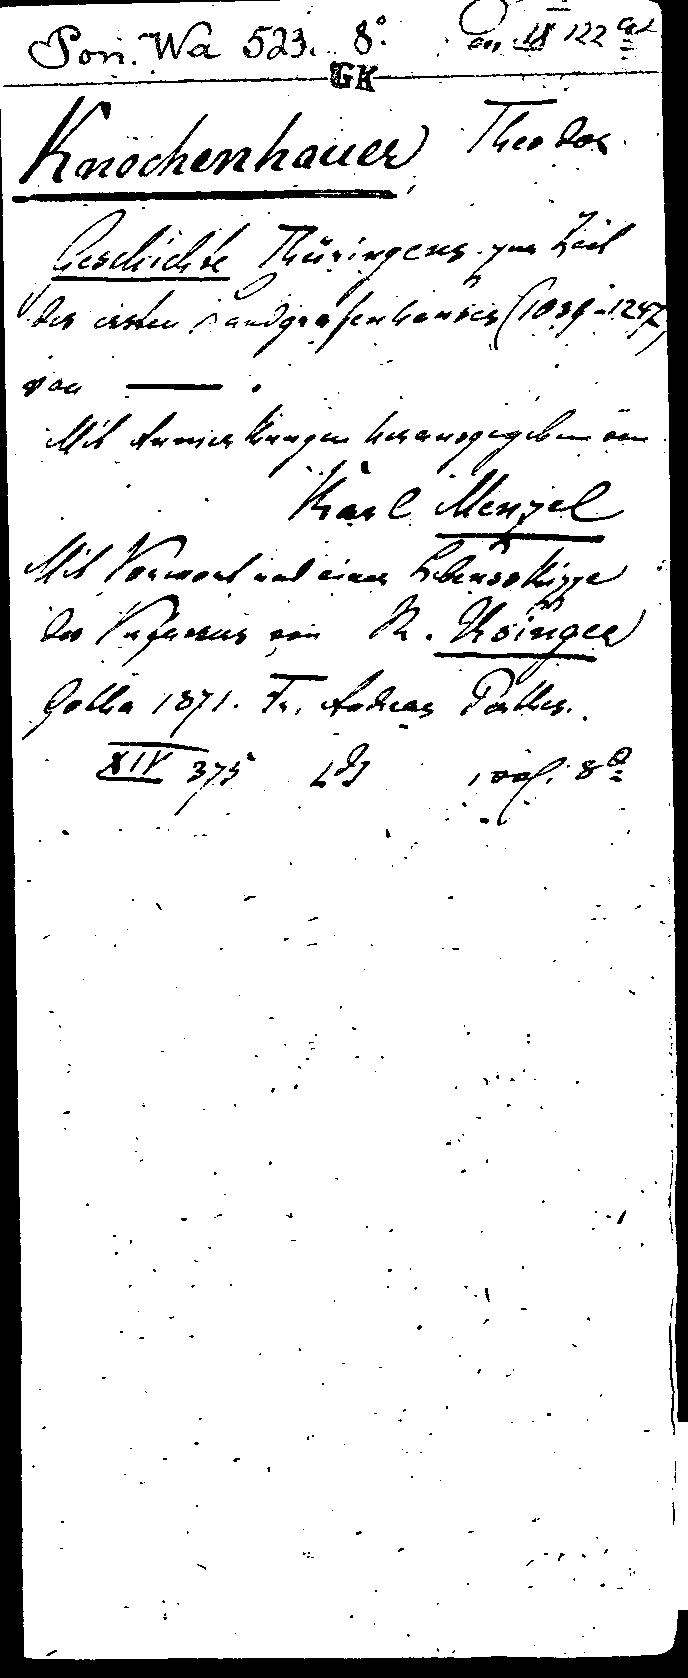 Pon. Wa 523. 8°. Pon. II 122
GK
Knochenhauer, Theodor.
Geschichte Thüringens zur Zeit
des ersten Landgrafenhauses (1039-1247)
von ——— .
Mit Anmerkungen herausgegeben von
Karl Menzel
Mit Vorwort und einer Lebensskizze
des Verfassers von R. Usinger
Gotha 1871. Fr. Andreas Perthes.
XIV 375 8°